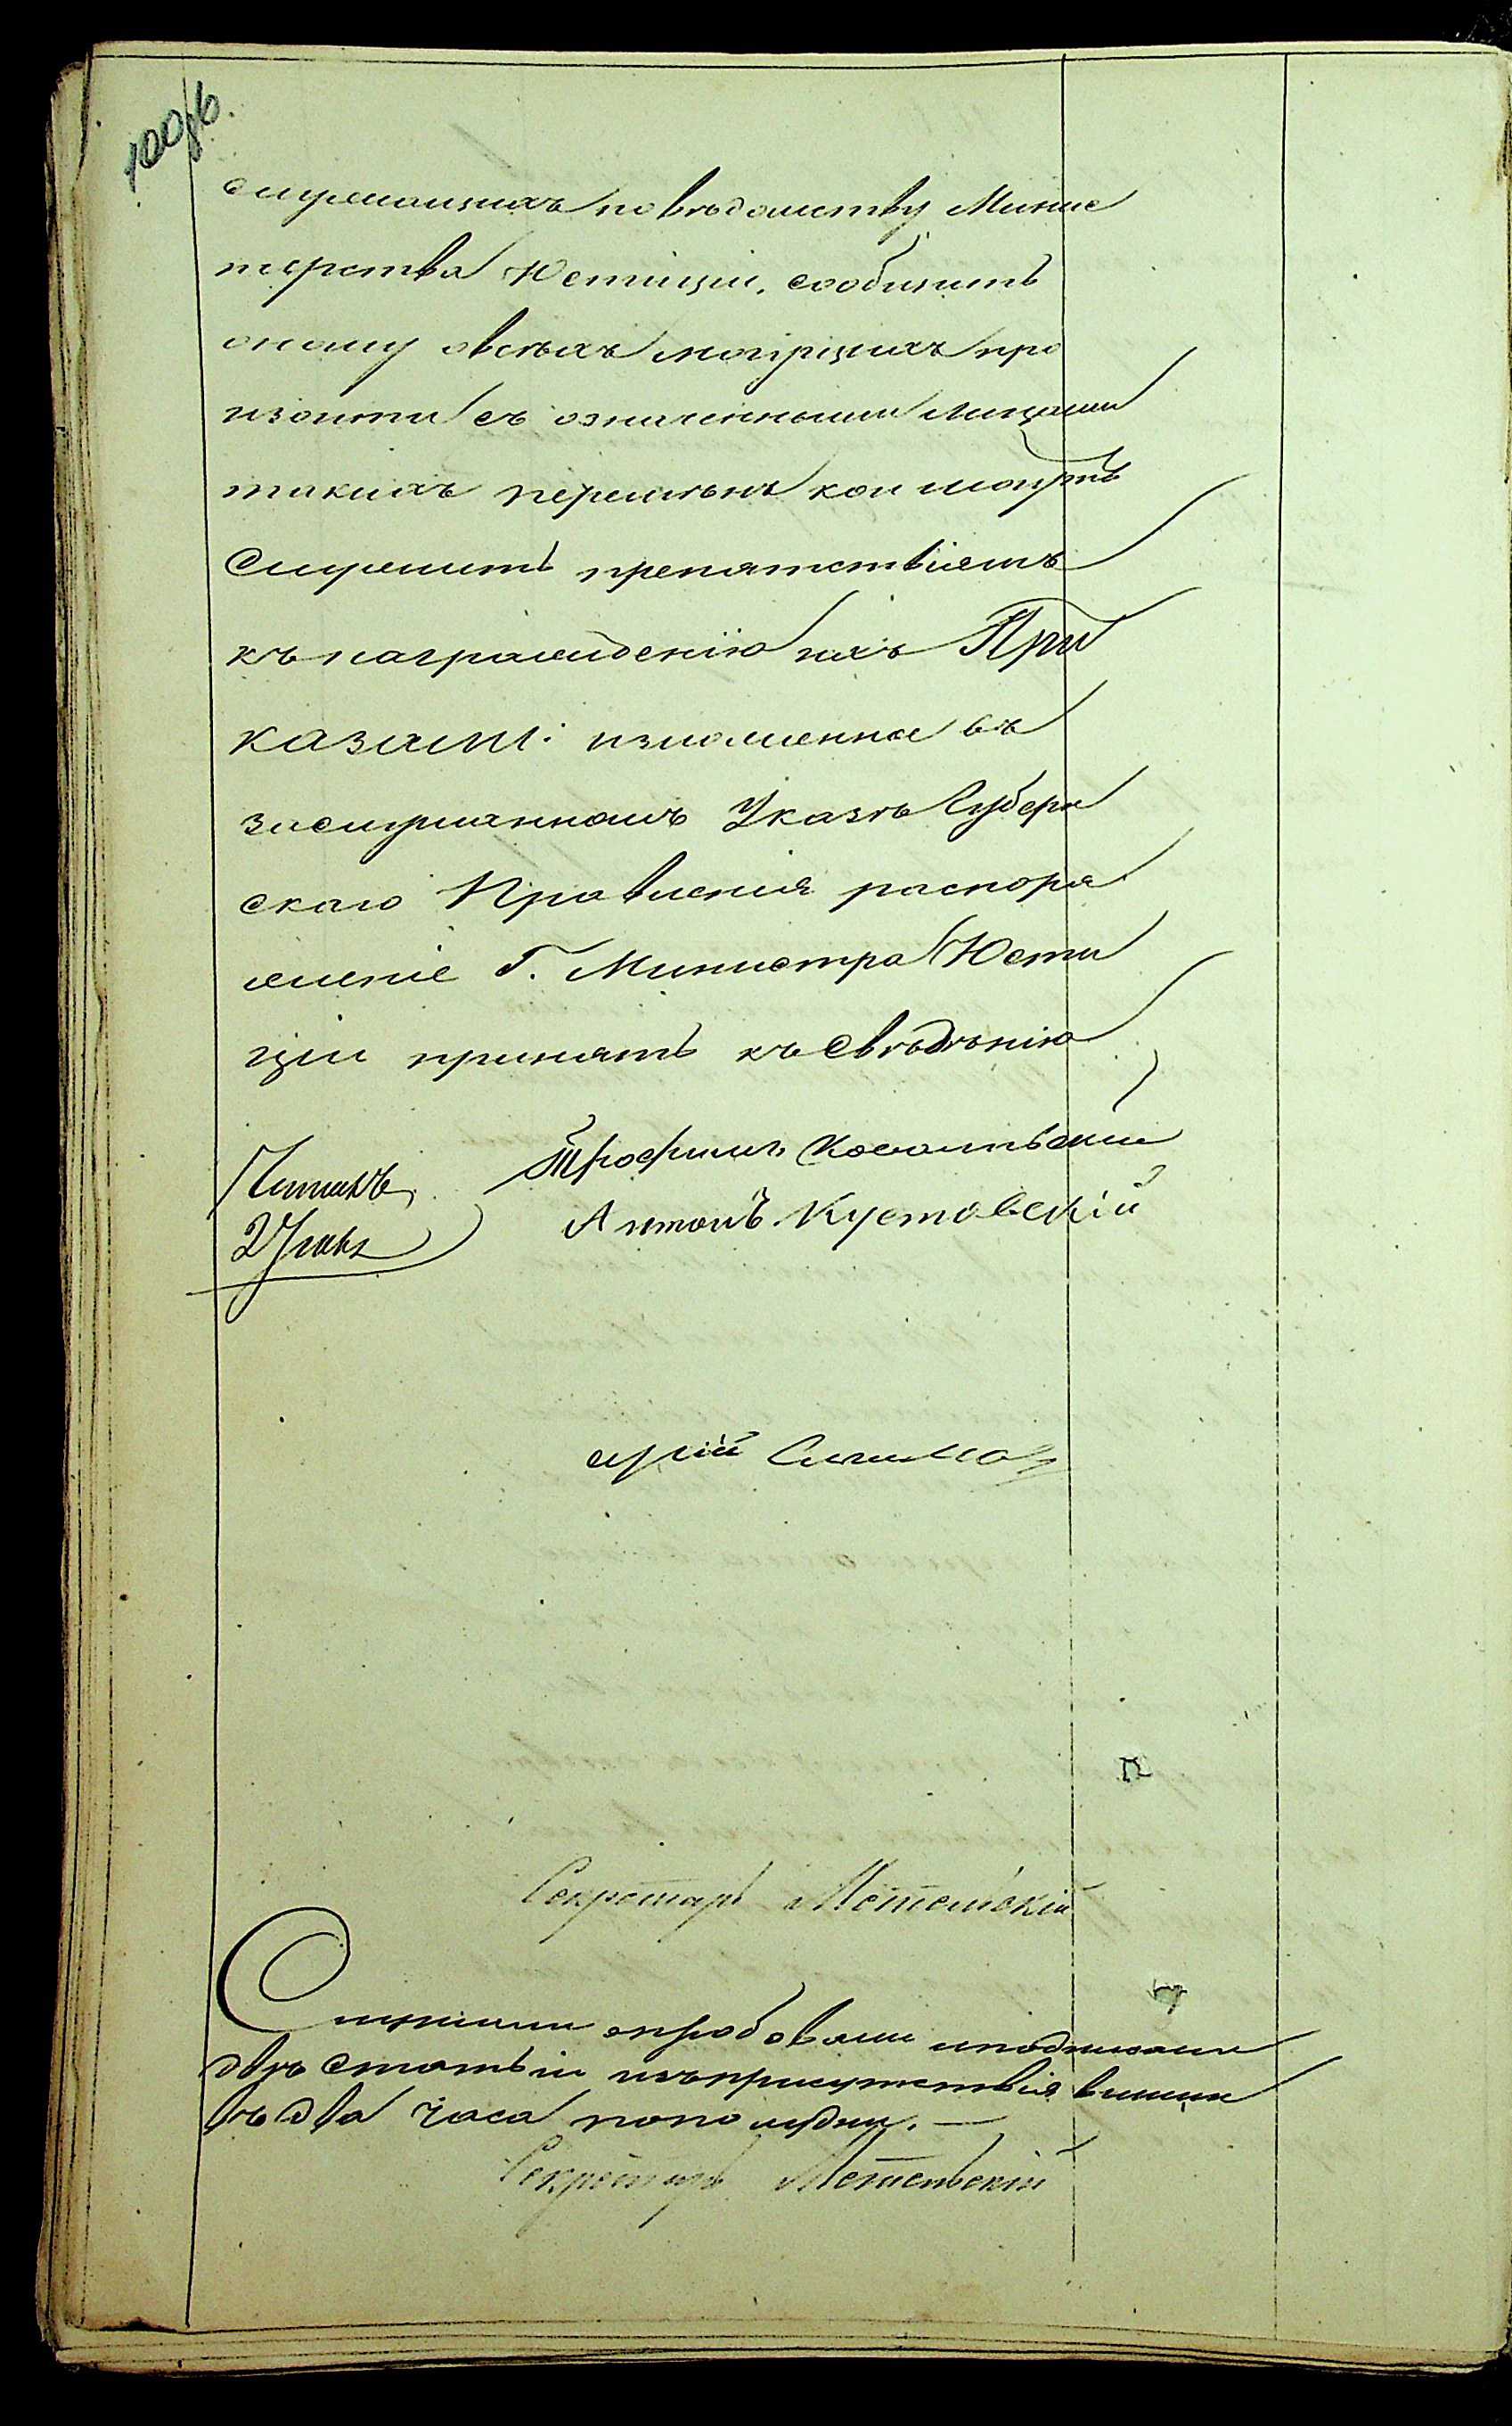 100об.
служащихъ по вѣдомству Минис
терства Юстиціи, сообщить
оному о всѣхъ могущихъ про
изойти съ означенными лицами
такихъ перемѣнъ кои могутъ
служить препятствіемъ
къ награжденію ихъ При
казали: изложенное въ
заслушанномъ Указѣ Губерн
скаго Правленія распоря
женіе Г. Министра Юсти
ціи принять къ свѣдѣнію
Трофимъ
Антонъ Кустовскій
Секретарь Метельскій
Слушали опробовали и подписали
двѣ статьи изъ присутствія вышли
въ два часа по полудни. —
Секретарь Метельскій